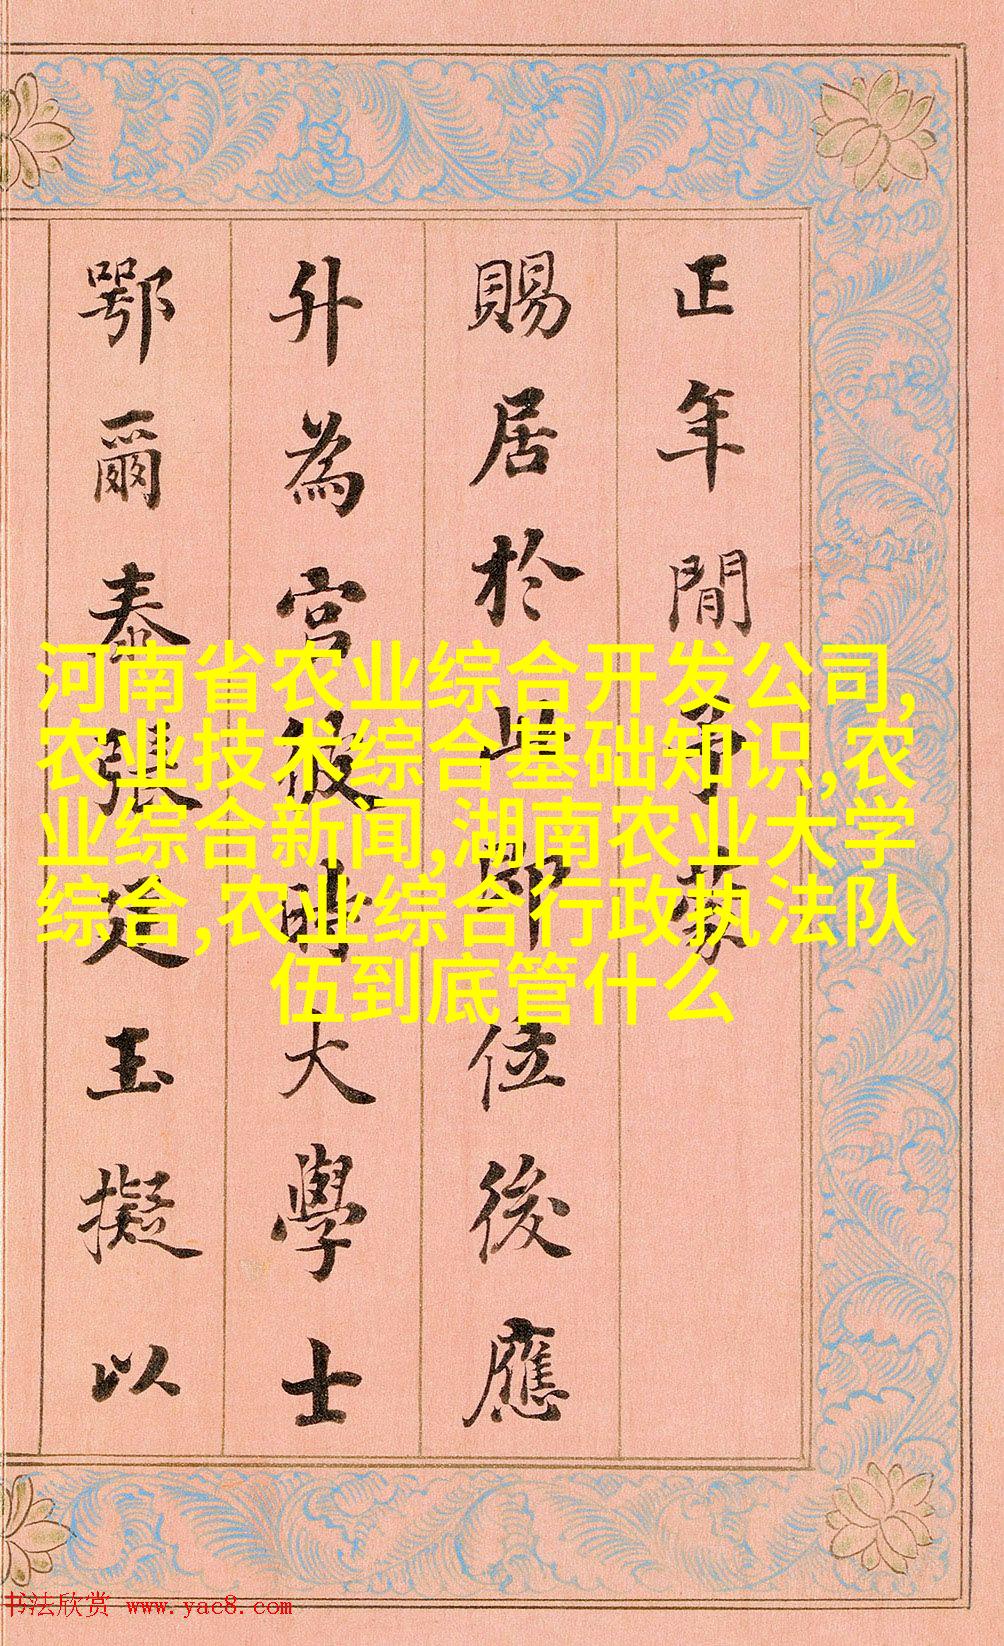 正年間予蒙
賜居於此即位後應
升為宮彼時大學士
鄂爾泰張廷玉擬以
河南省农业综合开发公司,
农业技术综合基础知识,农
业综合新闻,湖南农业大学
综合,农业综合行政执法队
伍到底管什么
书法欣赏 www.yac8.com